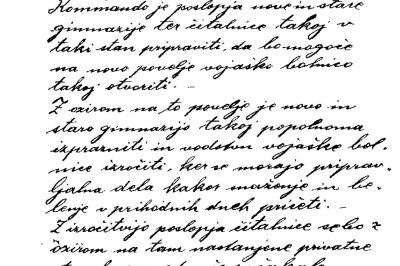 Kommando je poslopja nove in stare
gimnazije ter čitalnice takoj v
taki stan pripraviti, da bo mogoče
na novo povelje vojaško bolnico
takoj otvoriti. -
Z ozirom na to povelje je novo in
staro gimnazijo takoj popolnoma
izprazniti in vodstvu vojaške bol-
nice izročiti, ker se morajo priprav-
ljalna dela kakor snaženje in be-
lenje v prihodnih dneh pričeti. -
Z izročitvijo poslopja čitalnice se bo z
ozirom na tam nastanjene privatne